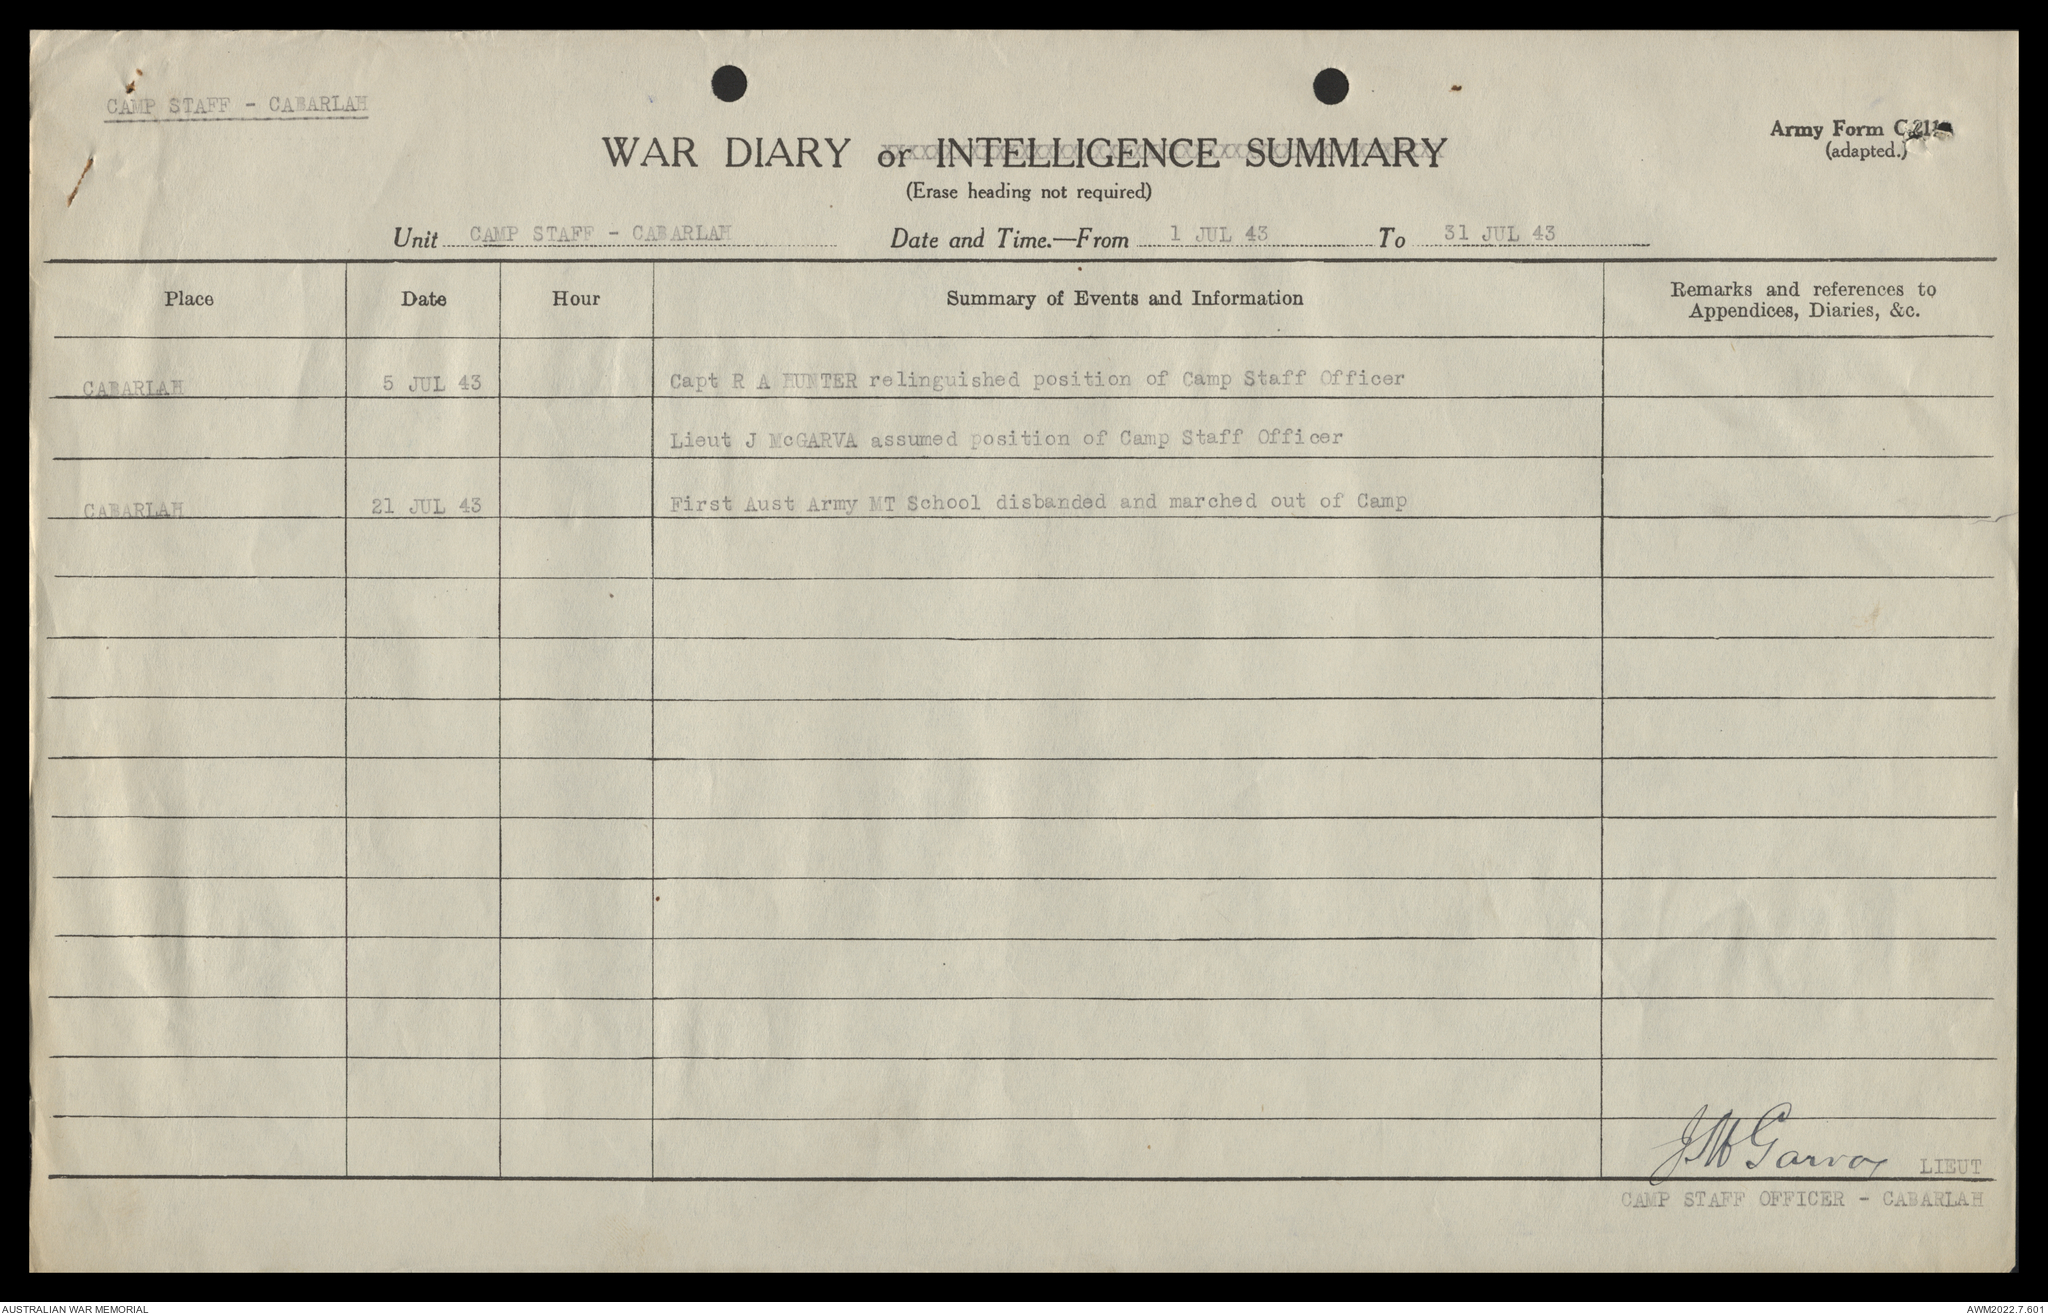 CAMP STAFF - CABARLAH
Army Form C.211
(adapted.)
WAR DIARY or INTELLIGENCE SUMMARY
(Erase heading not required)
Unit CAMP STAFF - CABARLAH Date and Time.—From 1 JUL 43 To 31 JUL 43
Place Date Hour Summary of Events and Information Remarks and references to
Appendices, Diaries, &c.
CABARLAH 5 JUL 43 Capt R A HUNTER relinguished position of Camp Staff Officer
Lieut J McGARVA assumed position of Camp Staff Officer
CABARLAH 21 JUL 43 First Aust Army MT School disbanded and marched out of Camp
J McGarva LIEUT
CAMP STAFF OFFICER - CABARLAH
AUSTRALIAN WAR MEMORIAL AWM2022.7.601